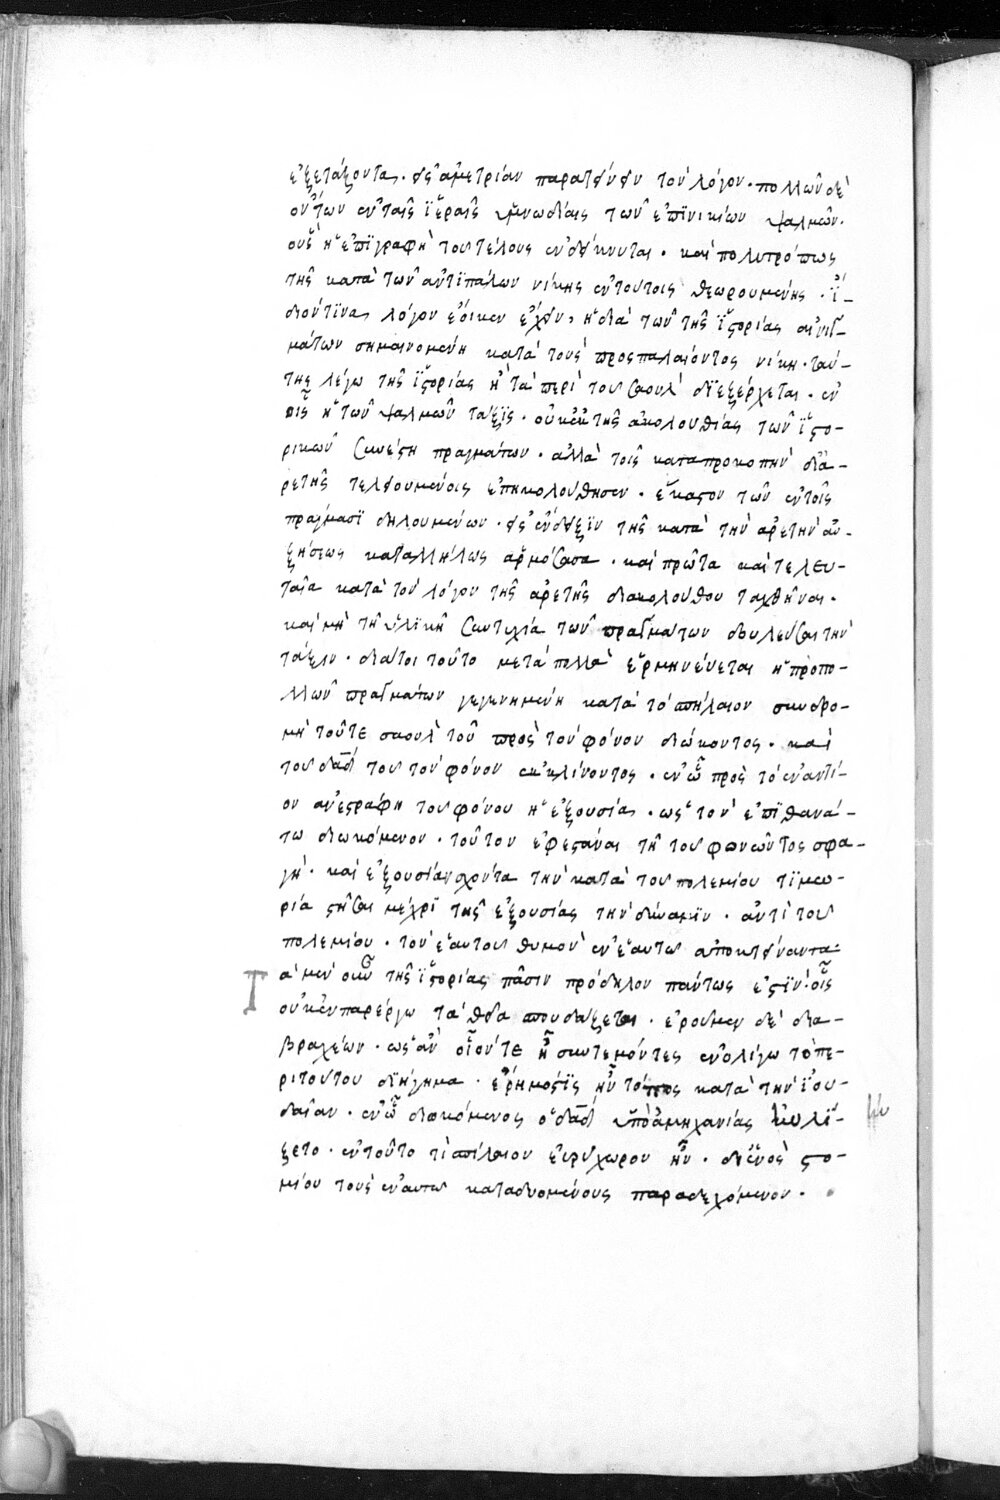 ἐξετάζοντας. εἰς ἀμετρίαν παρατείνειν τὸν λόγον. πολλῶν δὲ
ὄντων ἐν ταῖς ϊεραῖς ὑμνωδίαις τῶν ἐπϊνικίων ψαλμῶν.
οὓς ἡ ἐπϊγραφὴ τοῦ τέλους ἐνδείκνυται. καὶ πολυτρόπως
τῆς κατὰ τῶν ἀντϊπάλων νίκης ἐν τούτοις θεωρουμένης. ἴ-
διον τϊνα λόγον ἔοικεν ἔχειν, ἡ διὰ τῶν τῆς ϊστορίας αἰνιγ-
μάτων σημαινομένη κατὰ τοὺς προσπαλαίοντος νίκη. ταύ-
της λέγω τῆς ϊστορίας ἣ τὰ περὶ τοῦ σαοὺλ δϊεξέρχεται. ἐν
οἷς ἡ τῶν ψαλμῶν τάξϊς. οὐκ ἐκ τῆς ἀκολουθίας τῶν ϊστο-
ρικῶν συνέστη πραγμάτων. ἀλλὰ τοῖς κατὰ προκοπὴν δι' ἀ-
ρετῆς τελειουμένοις ἐπηκολούθησεν. ἕκαστον τῶν ἐν τοῖς
πράγμασϊ δηλουμένων. εἰς ἔνδειξϊν τῆς κατὰ τὴν ἀρετὴν αὐ-
ξήσεως καταλλήλως ἁρμόσασα. καὶ πρῶτα καὶ τελευ-
ταῖα κατὰ τὸν λόγον τῆς ἀρετῆς διακολούθου ταχθῆναι.
καὶ μὴ τῆ ὑλϊκῆ συντυχία τῶν πραγμάτων δουλεῦσαι τὴν
τάξιν. διάτοι τοῦτο μετὰ πολλὰ ἑρμηνεύεται ἡ πρὸ πο-
λλῶν πραγμάτων γεγενημένη κατὰ τὸ σπήλαιον συνδρο-
μὴ τοῦτε σαοὺλ τοῦ πρὸς τὸν φόνον διώκοντος. καὶ
τοῦ δαδ τοῦ τὸν φόνον ἐκκλίνοντος. ἐν ὧ πρὸς τὸ ἐναντί-
ον ἀνεστράφη τοῦ φόνου ἡ ἐξουσία. ὡς τὸν ἐπϊ θανά-
τω διωκόμενον. τοῦτον ἐφεστάναι τῆ τοῦ φονῶντος σφα-
γῆ. καὶ ἐξουσίαν σχόντα τὴν κατὰ τοῦ πολεμίου τϊμω-
ρία στῆσαι μέχρϊ τῆς ἐξουσίας τὴν δύναμϊν. ἀντὶ τοῦ
πολεμίου. τὸν ἑαυτοῦ θυμὸν ἐν ἑαυτῶ ἀποκτείναντα:
Τὰ μὲν οὖν τῆς ϊστορίας πᾶσιν πρόδηλον πάντως ἐστϊν. οἷς
οὐκ ἐν παρέργω τὰ θεῖα σπουδάζεται. ἐροῦμεν δὲ δια-
βραχέων. ὡς ἂν οἷόντε ἦ συντεμόντες ἐν ὀλίγω τὸ πε-
ρὶ τούτου δϊήγημα. ἐρημόσϊς ἦν τόπος κατὰ τὴν ϊου-
δαίαν. ἐν ὧ διωκόμενος ὁ δαδ ὑπὸ ἀμηχανίας ηὐλϊ-
ζετο. ἐν τοῦτο τὶ σπήλαιον εὐρύχωρον ἦν. δι' ἑνὸς στο-
μίου τοὺς ἐν αὐτῶ καταδυομένους παραδεχόμενον.